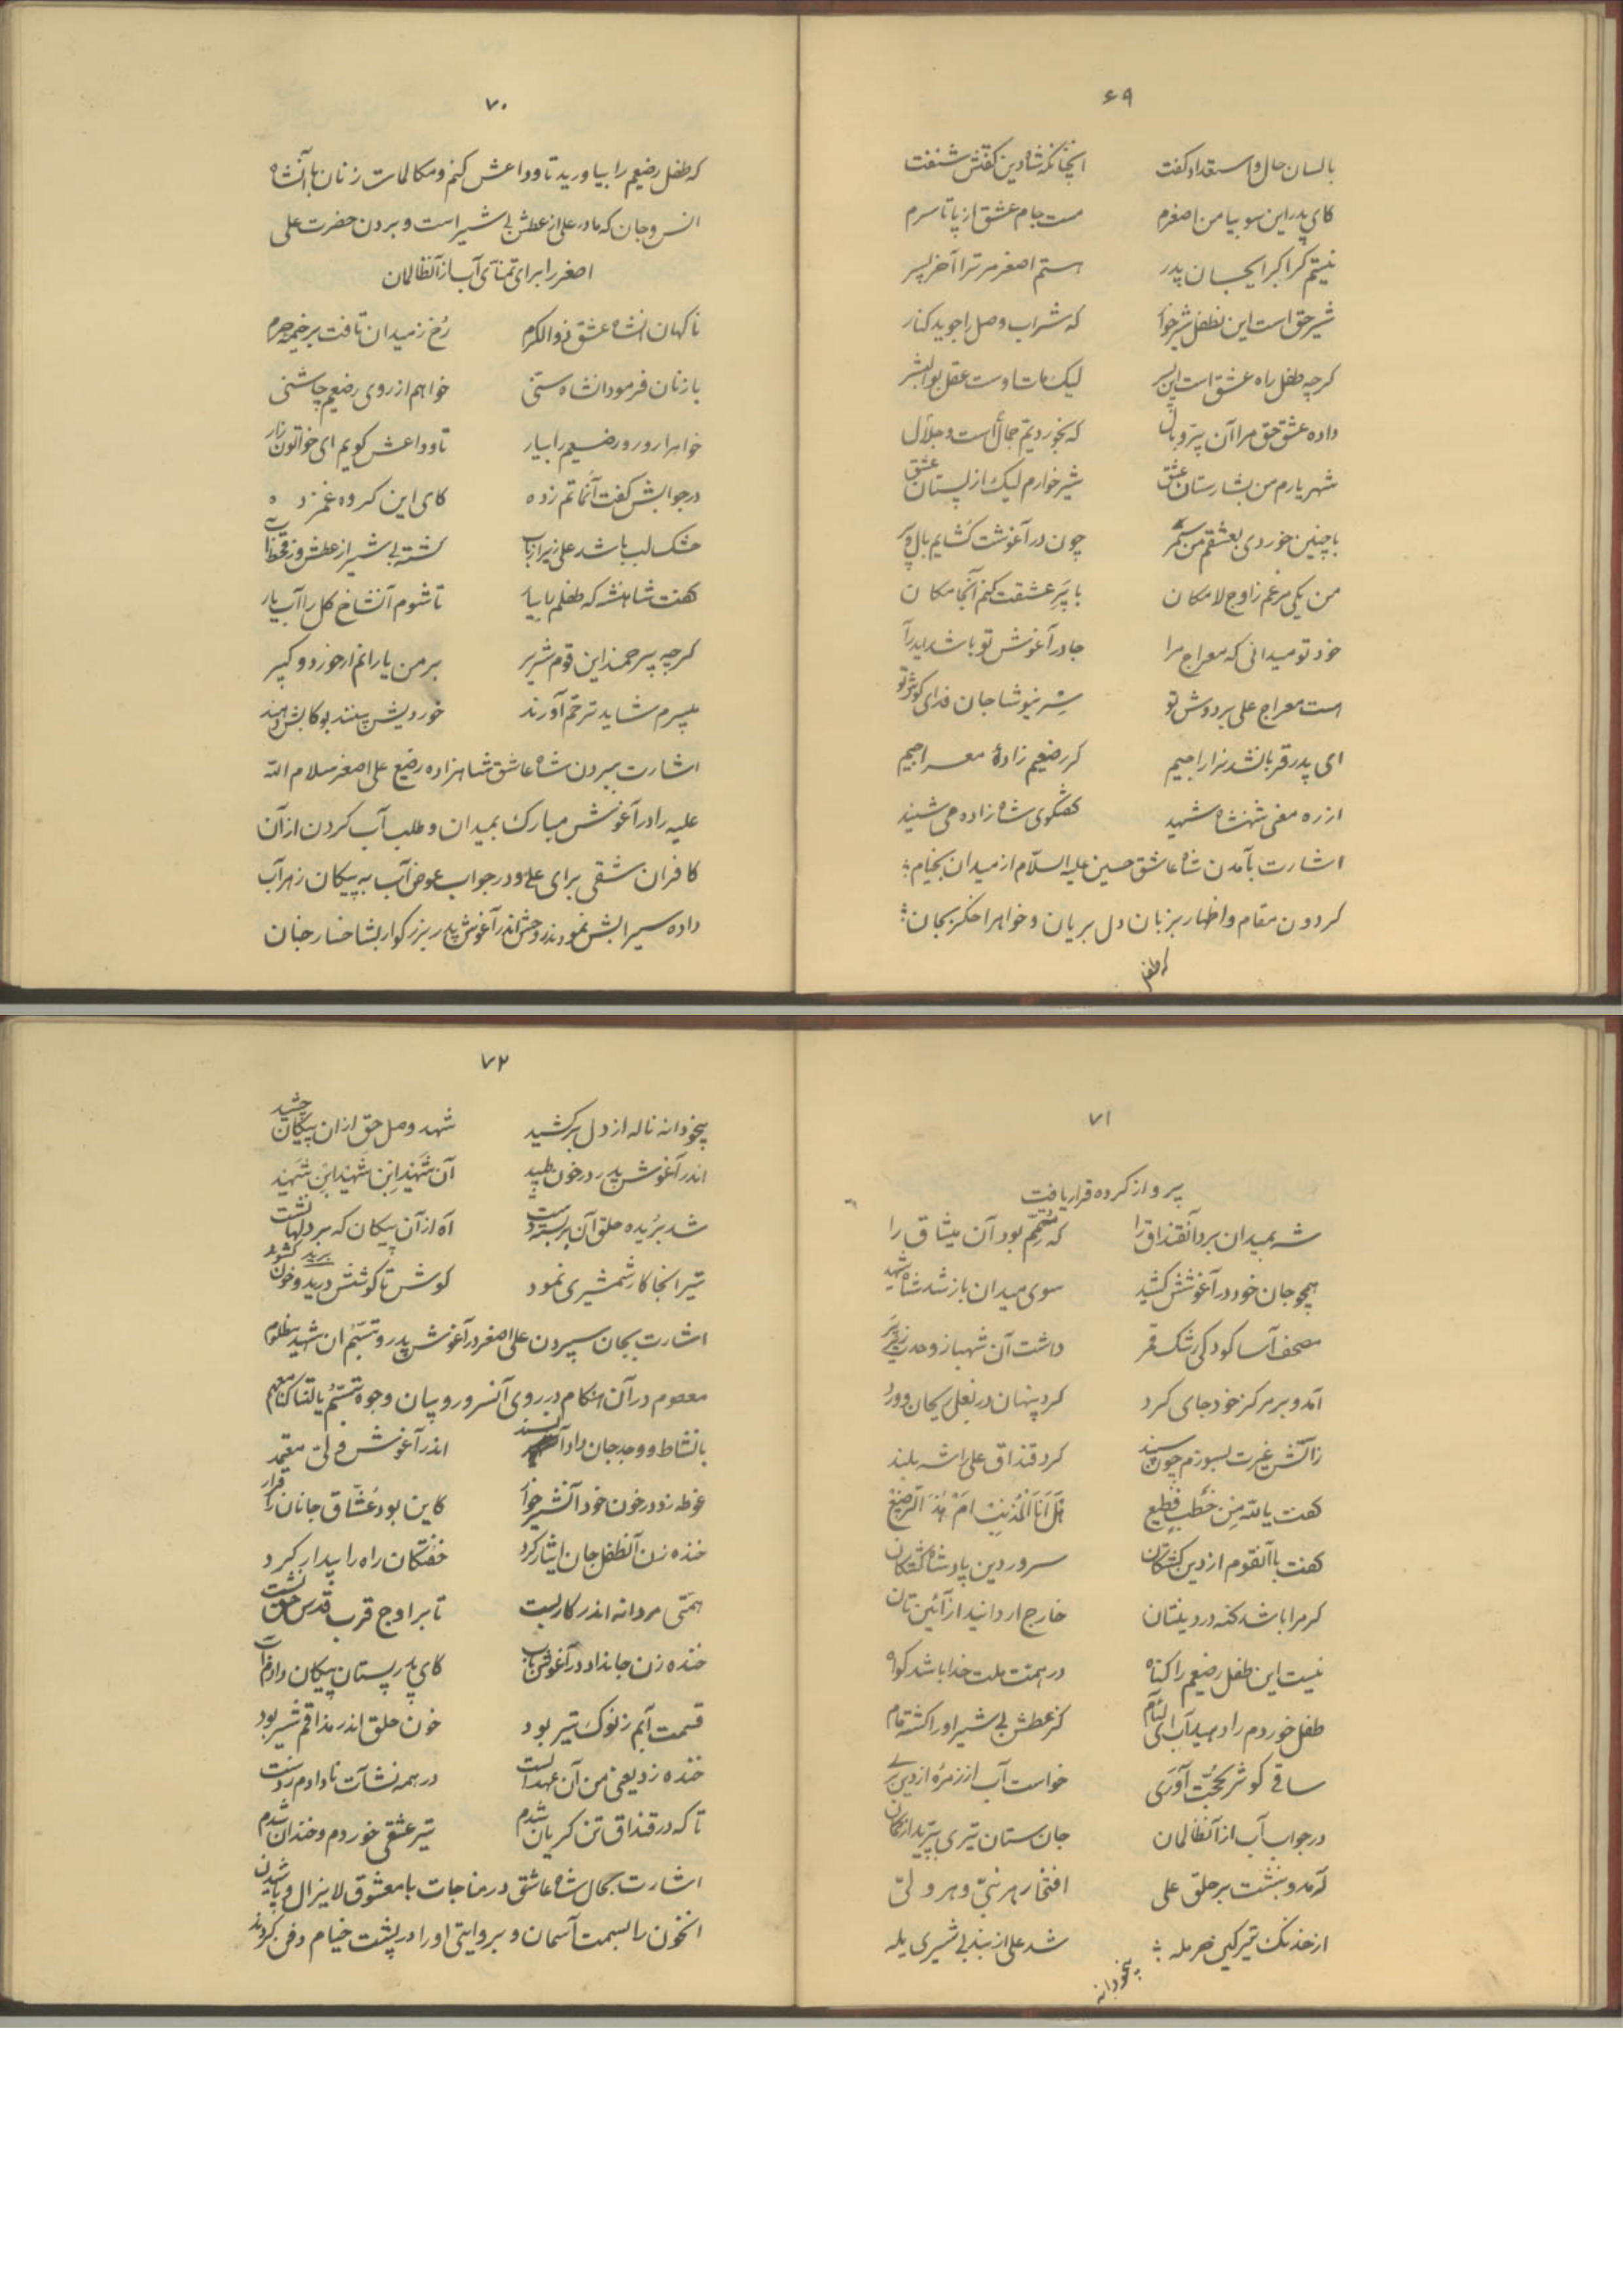 ۶۹
بالسان حال و استعداد گفت آنچنانکه شاه دین گفتش شنفت
کای پدر این سو بیا من اصغرم مست جام عشق از پا تا سرم
نیستم گر اکبر ایجان پدر هستم اصغر مر ترا آخر پسر
شیر حق است این طفل شیرخوار که شراب وصل را جوید کنار
گرچه طفل راه عشق است این پسر لیک مات اوست عقل بوالبشر
داده عشق حق مرا آن پرّ و بال که بخوردیم جمال است و جلال
شهریارم من بشارستان عشق شیرخوارم لیک از پستان عشق
با چنین خوردی بعشقم من سمر چون در آغوشت گشایم بال و پر
من یکی مرغم ز اوج لامکان با پَرِ عشقت کنم آنجا مکان
خود تو میدانی که معراج مرا جا در آغوش تو باشد
است معراج علی بر دوش تو سِر نیوشا جان فدای گوش تو
ای پدر قربانشد نزار اجیم گر رضیعم زادهٔ معراجیم
از ره معنی شهنشاه شهید گفتگوی شاهزاده می شنید
اشارت بآمدن شاه عاشق حسین علیه السّلام از میدان بخیام
گردون مقام و اظهار بزبان دل بریان و خواهر اخگر بجان
که طفل
۷۰
که طفل رضیعم را بیاورید تا وداعش کنم و مکالمات زنان با آنشاه
انس و جان که مادر علی از عطش بی شیر است و بردن حضرت علی
اصغر را برای تمنّای آب از آنظالمان
ناگهان انشاه عشق ذوالکرم رُخ ز میدان تافت بر خیمه حرم
با زنان فرمود انشاه ستی خواهم از روی رضیعم چاشنی
خواهرا رو رو رضیعم را بیار تا وداعش گویم ای خواتون زار
در جوابش گفت آنماتم زده کای این گروه غمزده
خشک لب باشد علی زیرا زتاب گشته بی شیر از عطش وز قحط آب
گفت شاهنشه که طفلم را بیار تا شوم آنشاخ گل را آبیار
گرچه بیرحمند این قوم شریر بر من یارانم از خورد و کبیر
میبرم شاید ترحّم آورند خوردیش بینند بو کابش دهند
اشارت ببردن شاه عاشق شاهزاده رضیع علی اصغر سلام اللّه
علیه را در آغوش مبارک بمیدان و طلب آب کردن از آن
کافران شقی برای علی و در جواب عوض آب به پیکان زهرآب
داده سیرابش نمودند و روحش اندر آغوش پدر بزرگوار بشاخسار جنان
۷۱
پرواز کرده قرار یافت
شه بمیدان برد آنقنداق را که متمّم بود آن میثاق را
همچو جان خود در آغوشش کشید سوی میدان باز شد شاه شهید
مصحف آسا کودکی رشک قمر داشت آن شهباز وحدت زیر پر
آمد و بر مرکز خود جای کرد کرد پنهان در بغل ریحان و ورد
زآتش غیرت بسوزم چون سپند کرد قنداق علی را شه بلند
گفت یاللّه مِن خَطبٍ فَظیع هَل اَنا المُذنِبُ اَم هذَا الرّضیع
گفت با آنقوم از دین گشتگان سرور دین پادشاه کشتگان
گر مرا باشد گنه در دینتان خارج ار دانید از آئین تان
نیست این طفل رضیعم را گناه در همه ملت خدا باشد گواه
طفل خوردم را دهید آب ای لئام کز عطش بی شیر او را گشته مام
ساقی کوثر بحجّت آوری خواست آب از زمرهٔ از دین بری
در جواب آب از آنظالمان جان ستان تیری بپرید از کمان
آمد و بنشست بر حلق علی افتخار هر نبیّ و هر ولیّ
از خدنگ تیر کین حرمله شد علی از بند بی شیری یله
بیخودانه
۷۲
بیخودانه ناله از دل برکشید شهد وصل حق ازان پیکان چشید
اندر آغوش پدر در خون طپید آن شهید ابن شهید ابن شهید
شد بُریده حلق آن آه از آن پیکان که بر دلها نشست
تیر انجا کار شمشیری نمود گوش تا گوشش درید و خون گشود
برید
اشارت بجان سپردن علی اصغر در آغوش پدر و تبسّم ان شهید مظلوم
معصوم در آن هنگام در روی آنسرور و بیان وجوه تبسّم یا لیتنا کنّا معهم
با نشاط و وجد جان داد اندر آغوش ولیّ معتمد
غوطه زد در خون خود آنشیرخوار کاین بود عُشّاق جانان را قرار
خنده زن آنطفل جان ایثار کرد خفتگان راه را بیدار کرد
همّتی مردانه اندر کار بست تا بر اوج قرب قدس حق نشست
خنده زن جانداد در آغوش باب کای پدر پستان پیکان داد آب
قسمت آبم ز نوک تیر بود خون حلق اندر مذاقم شیر بود
خنده زد یعنی من آن عهد الست در همه نشآت نادادم ز دست
تا که در قنداق تن گریان شدم تیر عشقی خوردم و خندان شدم
اشارت بحال شاه عاشق در مناجات با معشوق لایزال و پاشیدن
انخون را بسمت آسمان و بروایتی او را در پشت خیام دفن کردند